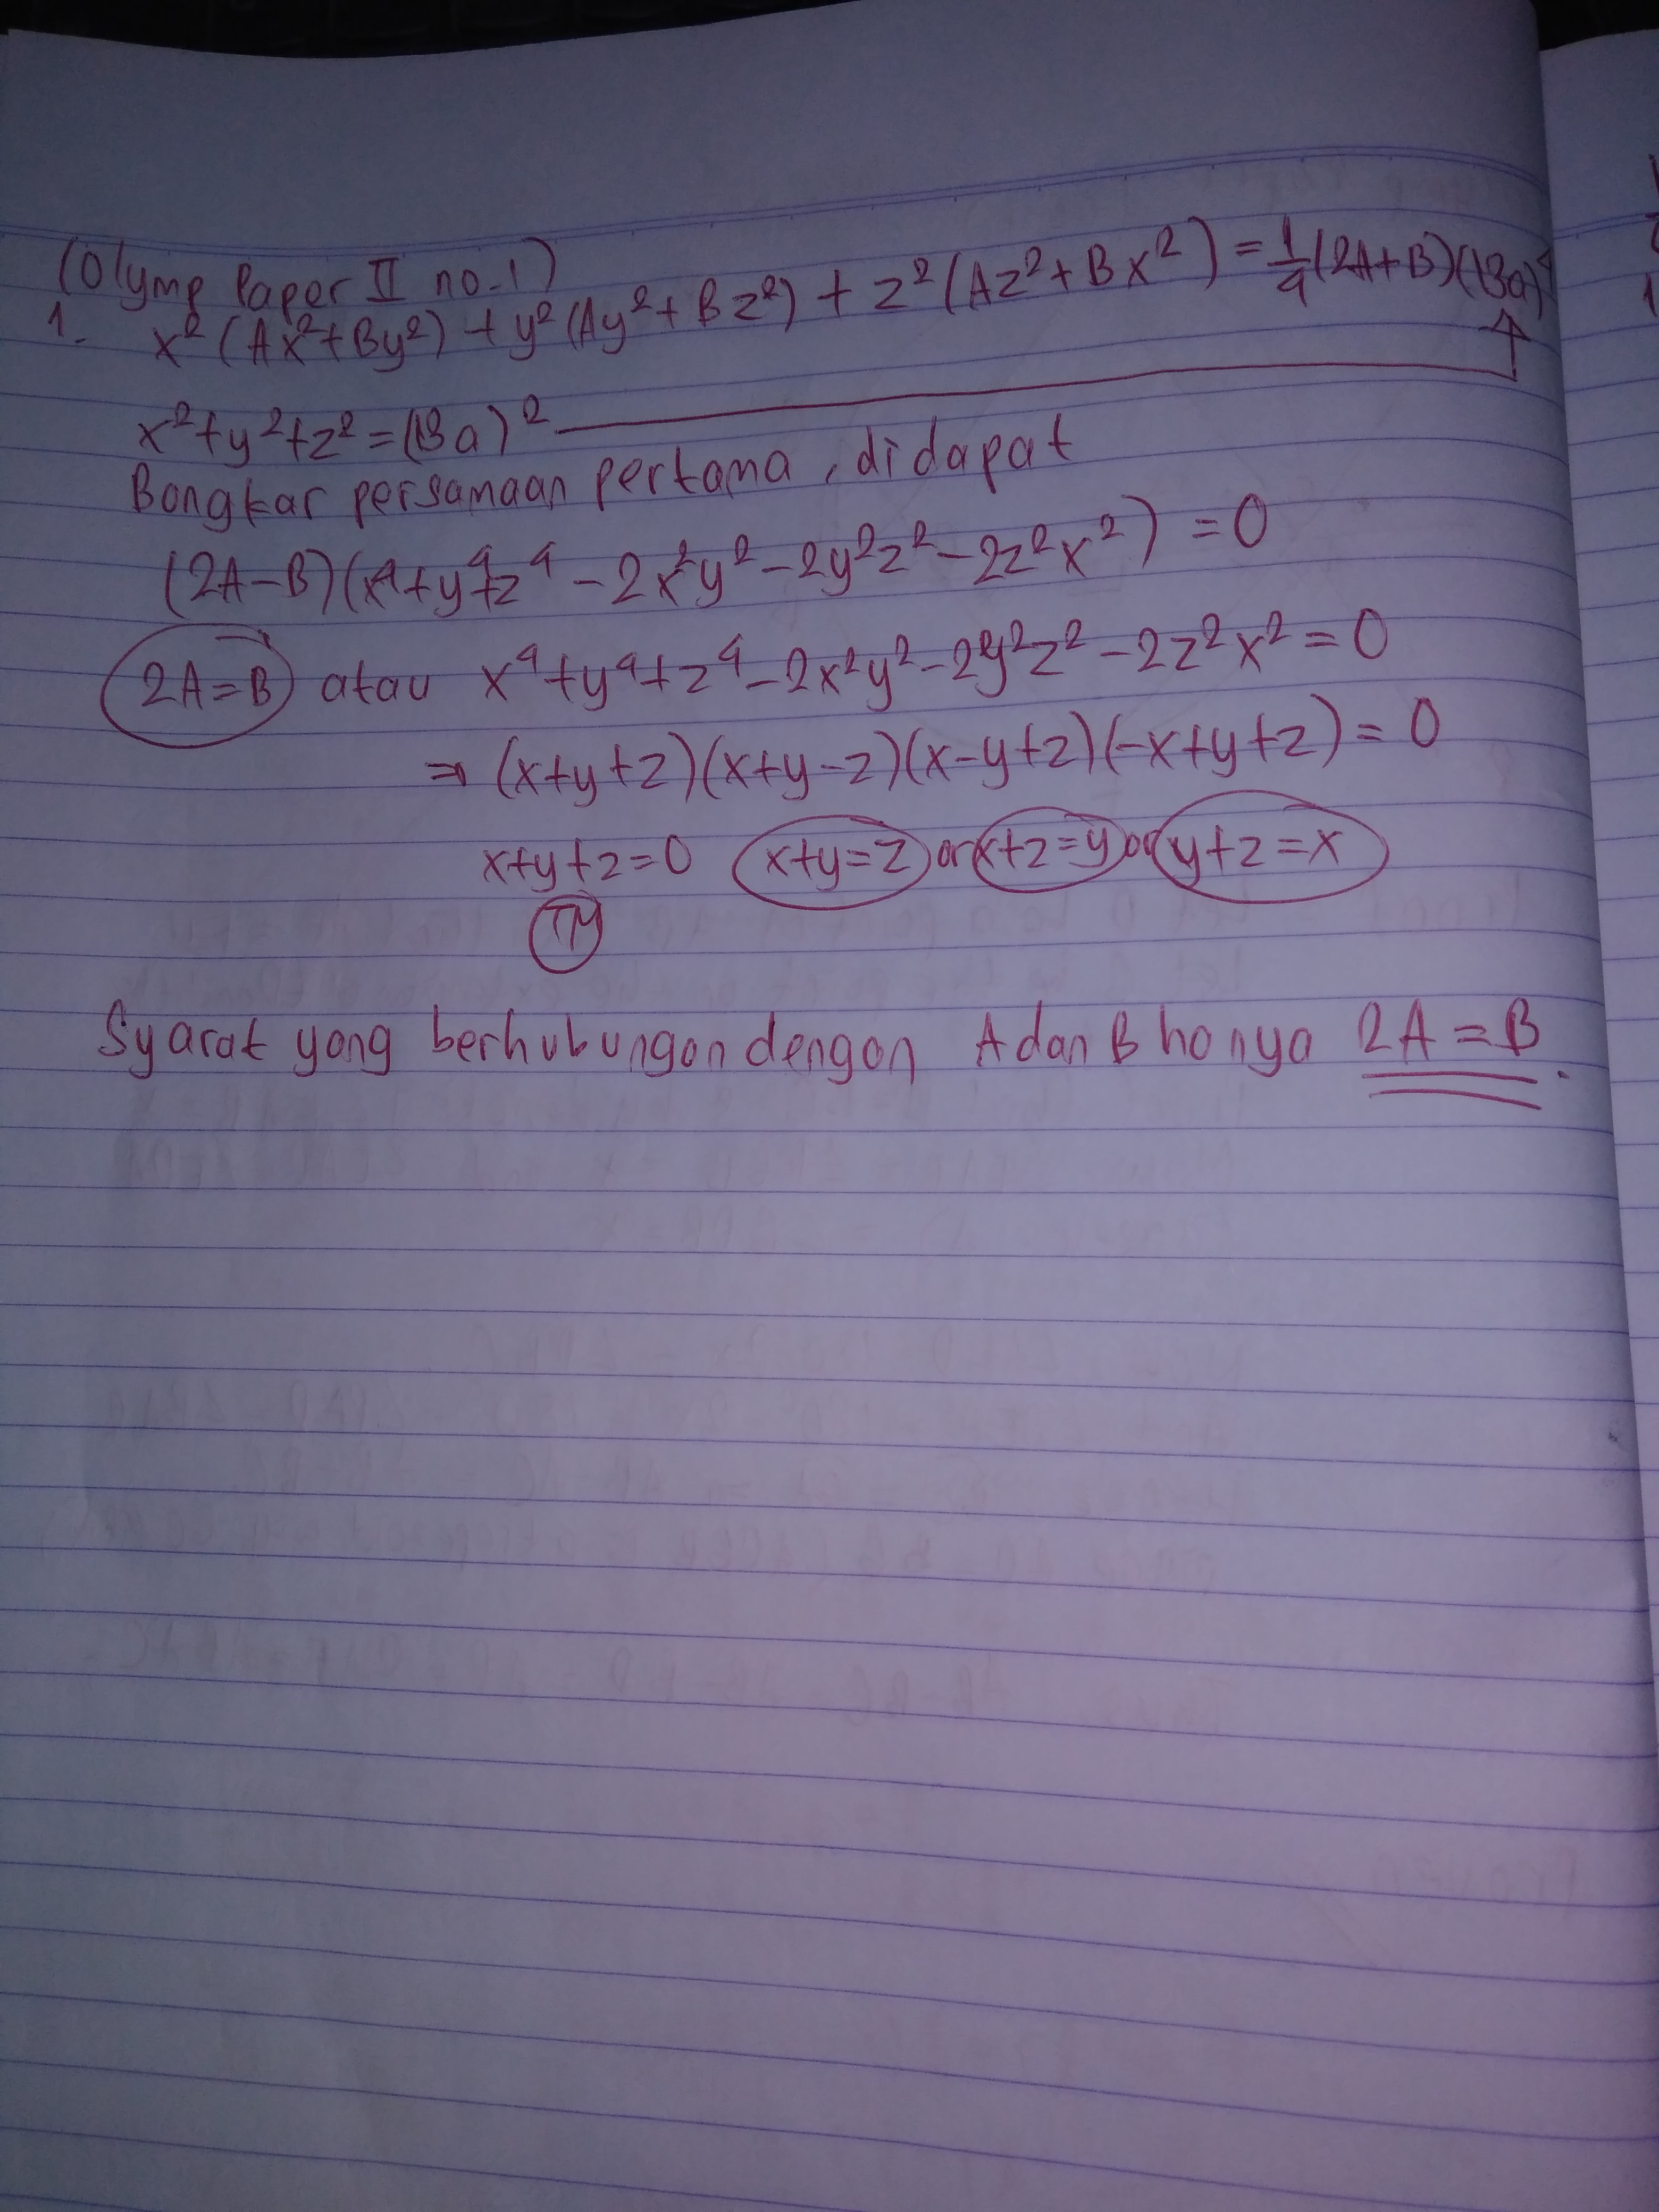 (Olymp Paper II no.1)
1. x²(Ax²+By²) + y²(Ay²+Bz²) + z²(Az²+Bx²) = 1/4(2A+B)(13a)⁴
x²+y²+z² = (13a)²
Bongkar persamaan pertama, didapat
(2A-B)(x⁴+y⁴+z⁴ - 2x²y² - 2y²z² - 2z²x²) = 0
2A=B atau x⁴+y⁴+z⁴-2x²y²-2y²z²-2z²x² = 0
⇒ (x+y+z)(x+y-z)(x-y+z)(-x+y+z) = 0
x+y+z=0 x+y=z or x+z=y or y+z=x
TM
Syarat yang berhubungan dengan A dan B hanya 2A = B.